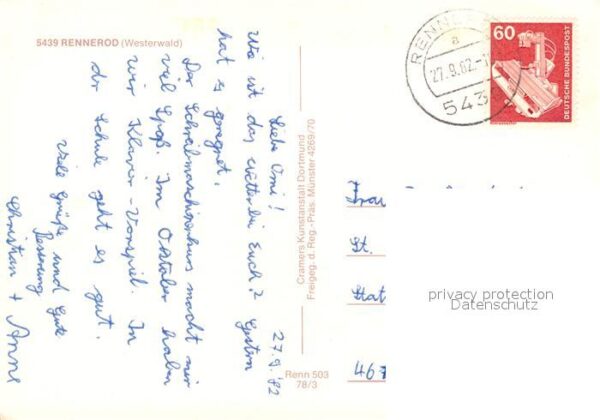 5439 RENNEROD (Westerwald)
27.9.'82
Liebe Omi!
Wie ist das Wetter bei Euch? Gestern
hat es geregnet.
Der Schreibmaschinenkurs macht mir
viel Spaß. Im Oktober haben
wir Klavier-Vorspiel. In
der Schule geht es gut.
Viele Grüße und Gute
Besserung
Christian + Anne
Cramers Kunstanstalt Dortmund
Freigeg. d. Reg.-Präs. Münster 4269/70
Renn 503
78/3
RENNE
a
27.9.82.-1
543
60
DEUTSCHE BUNDESPOST
Frau
St.
Stat
467
privacy protection
Datenschutz